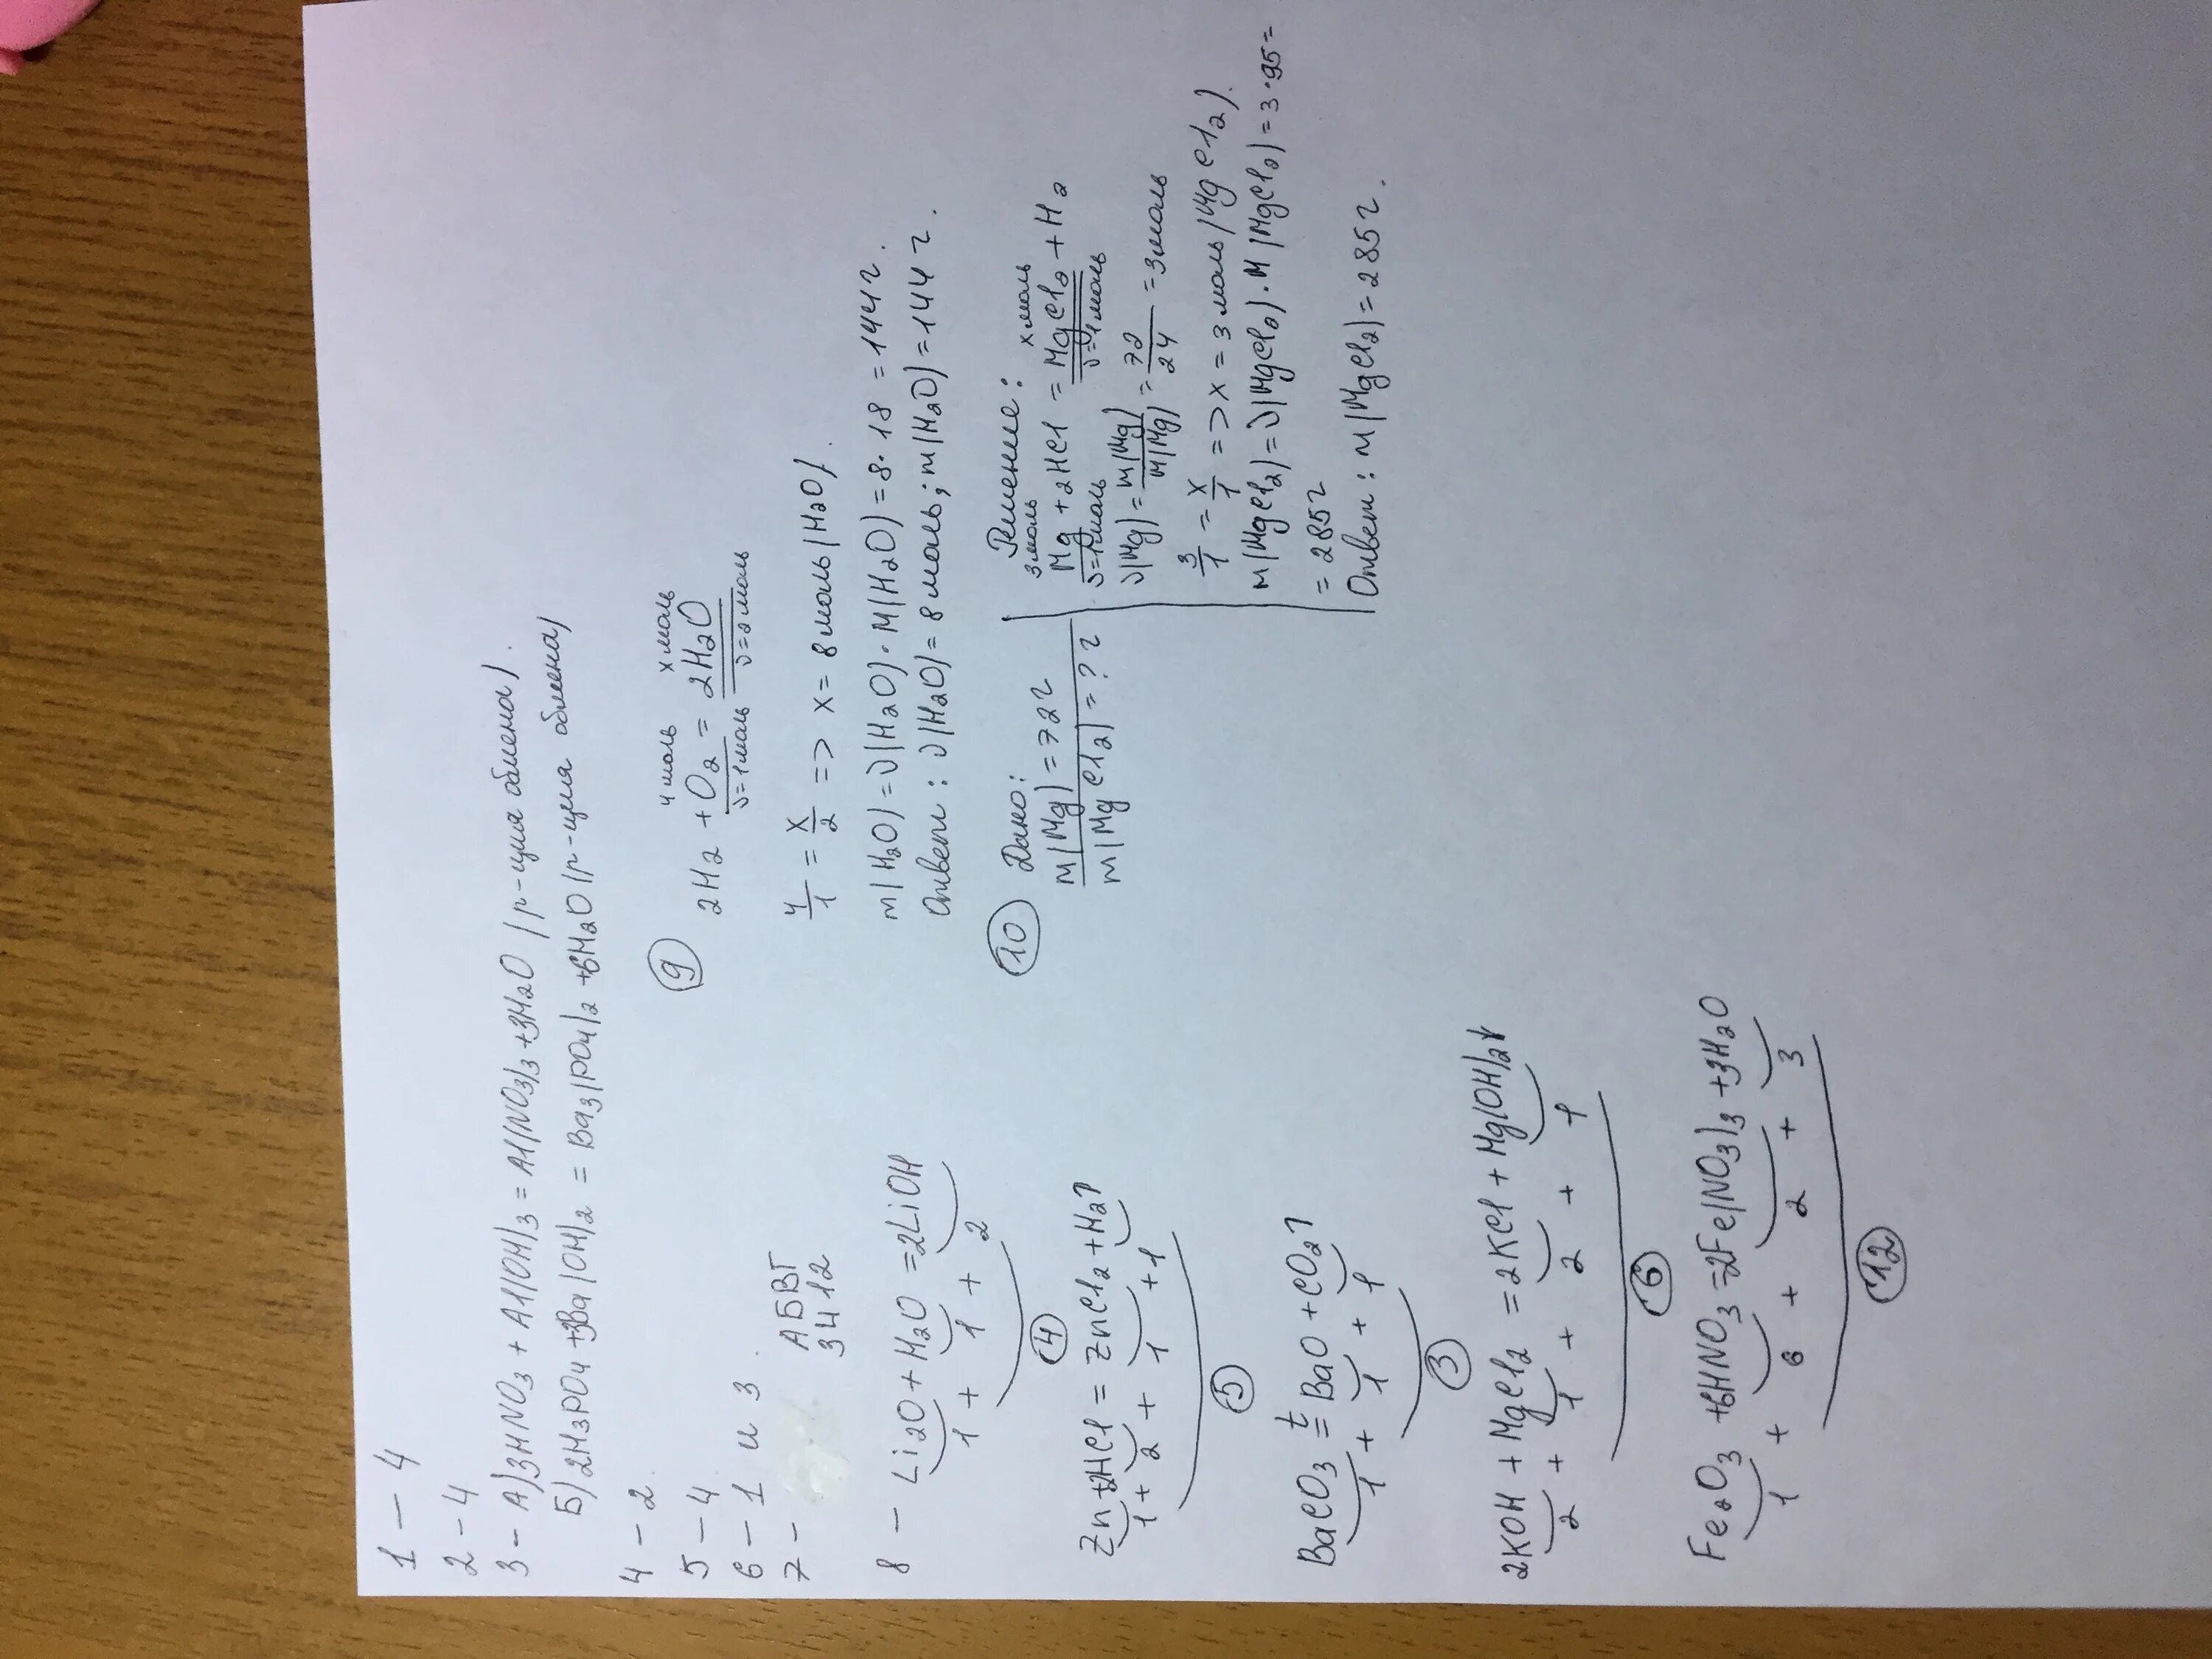 1 – 4
2 – 4
3 – А) 3HNO3 + Al(OH)3 = Al(NO3)3 + 3H2O (р-ция обмена).
Б) 2H3PO4 + 3Ba(OH)2 = Ba3(PO4)2 + 6H2O (р-ция обмена)
4 – 2.
5 – 4.
6 – 1 и 3.
7 – АБВГ
3412
8 – Li2O + H2O = 2LiOH
1 + 1 + 2
4
Zn + 2HCl = ZnCl2 + H2↑
1 + 2 + 1 + 1
5
BaCO3 =t BaO + CO2↑
1 + 1 + 1
3
2KOH + MgCl2 = 2KCl + Mg(OH)2↓
2 + 1 + 2 + 1
6
Fe2O3 + 6HNO3 = 2Fe(NO3)3 + 3H2O
1 + 6 + 2 + 3
12
9
4 моль x моль
2H2 + O2 = 2H2O
ν=1моль ν=2моль
4/1 = x/2 => x = 8 моль (H2O).
m(H2O) = ν(H2O) · M(H2O) = 8 · 18 = 144 г.
Ответ: ν(H2O) = 8 моль; m(H2O) = 144 г.
10
Дано:
m(Mg) = 72 г
m(MgCl2) = ? г
Решение:
3 моль x моль
Mg + 2HCl = MgCl2 + H2
ν=1моль ν=1моль
ν(Mg) = m(Mg)/M(Mg) = 72/24 = 3 моль
3/1 = x/1 => x = 3 моль (MgCl2).
m(MgCl2) = ν(MgCl2) · M(MgCl2) = 3 · 95 =
= 285 г
Ответ: m(MgCl2) = 285 г.